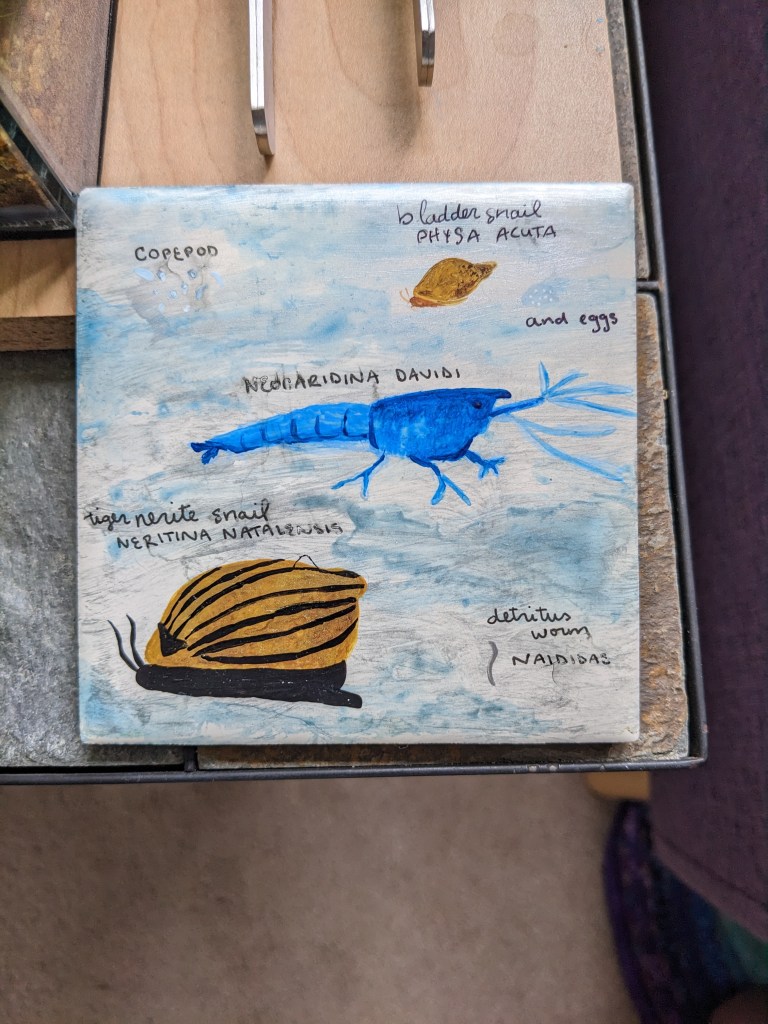 COPEPOD
bladder snail
PHYSA ACUTA
and eggs
NEOCARIDINA DAVIDI
tiger nerite snail
NERITINA NATALENSIS
detritus
worm
NAIDIDAS